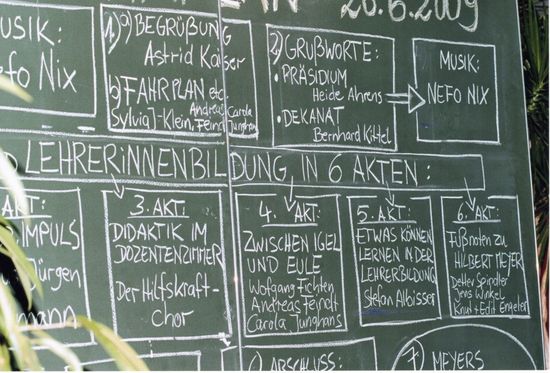 AN 26.6.2009
USIK:
efo Nix
1) a) BEGRÜßUNG
Astrid Kaiser
b) FAHRPLAN etc.
Andreas, Carola
Sylvia J-Klein, Feindt, Junghans
2) GRUßWORTE:
• PRÄSIDIUM
Heide Ahrens
• DEKANAT
Bernhard Kittel
MUSIK:
NEFO NIX
LEHRERiNNENBILDUNG, IN 6 AKTEN:
AKT:
IMPULS
Jürgen
mann
3. AKT:
DIDAKTIK IM
DOZENTENZIMMER
Der Hilfskraft-
Chor
4. AKT:
ZWISCHEN IGEL
UND EULE
Wolfgang Fichten
Andreas Feindt
Carola Junghans
5. AKT:
ETWAS KÖNNEN
LERNEN IN DER
LEHRERBILDUNG
Stefan Albisser
6. AKT:
Fußnoten zu
HILBERT MEYER
Detlev Spindler
Jens Winkel
Knut + Edit Engeler
) ABSCHLUSS:
7) MEYERS